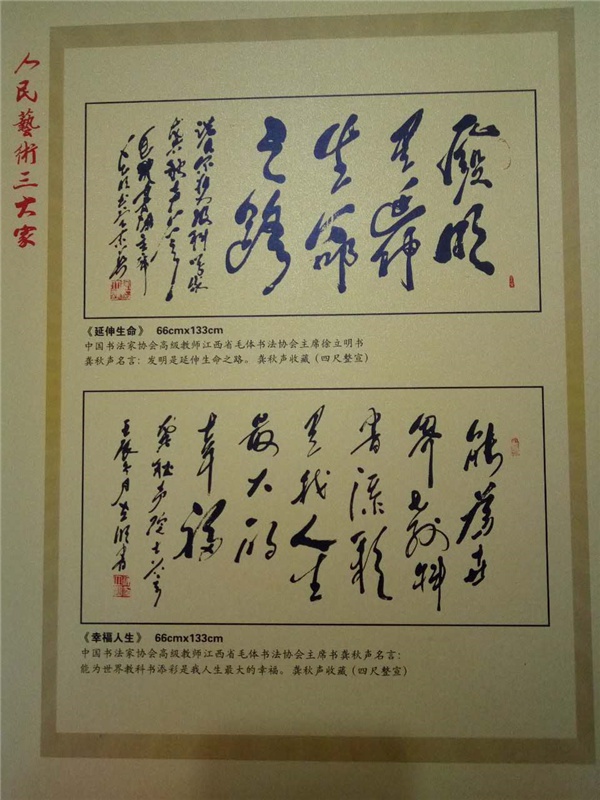 人民藝術三大家
發明
是延伸
生命
之路
《延伸生命》 66cmx133cm
中国书法家协会高级教师江西省毛体书法协会主席徐立明书
龚秋声名言：发明是延伸生命之路。龚秋声收藏（四尺整宣）
能為世
界教科
書添彩
是我人生
最大的
幸福
《幸福人生》 66cmx133cm
中国书法家协会高级教师江西省毛体书法协会主席书龚秋声名言：
能为世界教科书添彩是我人生最大的幸福。龚秋声收藏（四尺整宣）